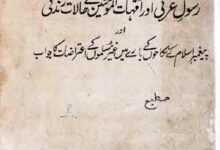 رسول عربی اور امہات المومنین کے حالات زندگی
اور
پیغمبر اسلام کے نکاحوں کے بارے میں غیر مسلموں کے اعتراضات کا جواب